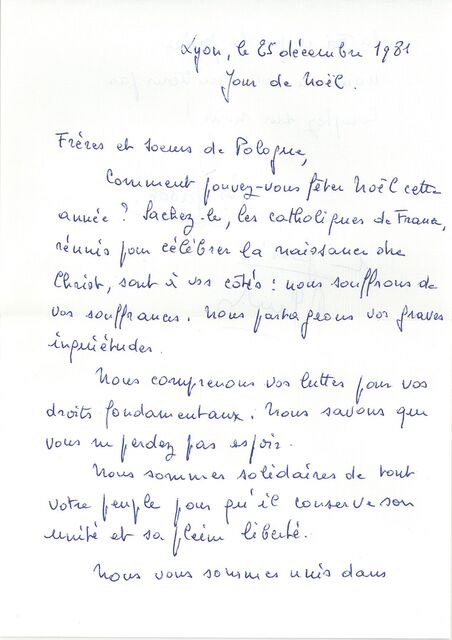 Lyon, le 25 décembre 1981
Jour de Noël.
Frères et soeurs de Pologne,
Comment pouvez-vous fêter Noël cette
année ? Sachez-le, les catholiques de France,
réunis pour célébrer la naissance du
Christ, sont à vos côtés : nous souffrons de
vos souffrances. Nous partageons vos graves
inquiétudes.
Nous comprenons vos luttes pour vos
droits fondamentaux. Nous savons que
vous ne perdez pas espoir.
Nous sommes solidaires de tout
votre peuple pour qu'il conserve son
unité et sa pleine liberté.
Nous vous sommes unis dans